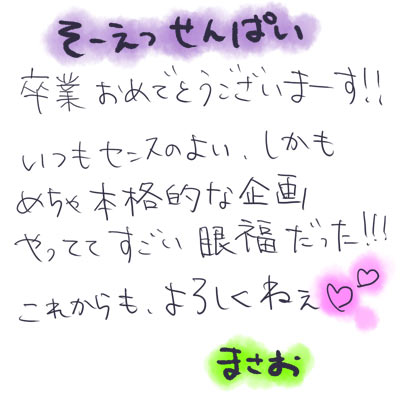 そーえっせんぱい
卒業おめでとうございまーす!!
いつもセンスのよい、しかも
めちゃ本格的な企画
やっててすごい眼福だった!!!
これからも、よろしくねぇ♡♡
まさお